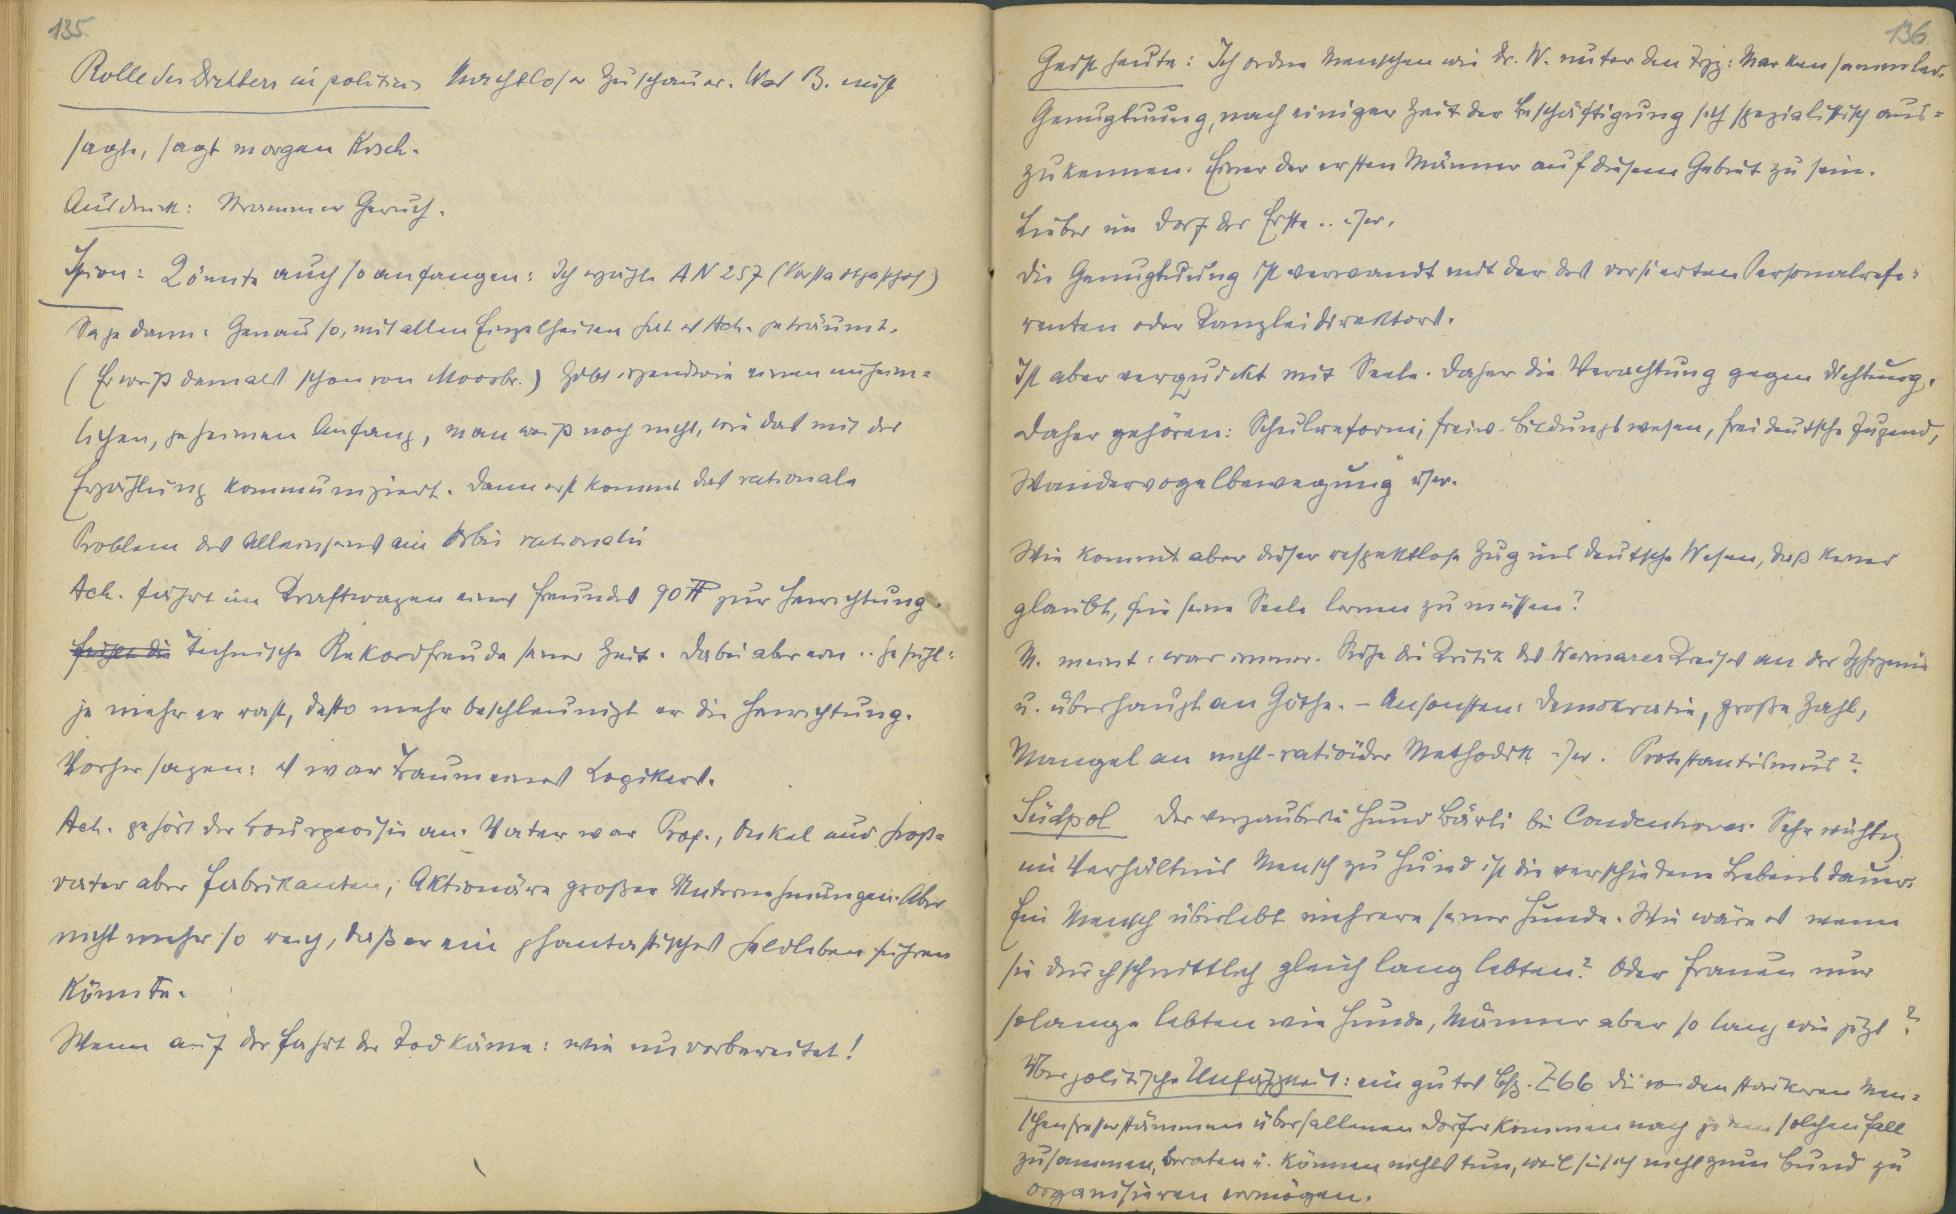 135
Rolle des Dichters in politicis Machtloser Zuschauer. Was B. mist
sagte, sagt morgen Kisch.
Ausdruck: Strammer Geruch.
Spion: Könnte auch so anfangen: Ich erzähle AN 257 (Vorstadtgasthof)
Sage dann: Genau so, mit allen Einzelheiten hat es Ach. geträumt.
(Er weiß damals schon von Moosbr.) Gibt irgendwie einen unheim=
lichen, geheimen Anfang, man weiß noch nicht, wie das mit der
Erzählung kommuniziert. Dann erst kommt das rationale
Problem des Alleinseins ein rationalis
Ach. fährt im Kraftwagen eines Freundes 90 zur Hinrichtung.
Technische Rekordfreude seiner Zeit. Dabei aber ein .. Gefühl:
je mehr er rast, desto mehr beschleunigt er die Hinrichtung.
Vorher sagen: es war Traum eines Logikers.
Ach. gehört der Bourgeoisie an. Vater war Prof., Onkel und Groß=
vater aber Fabrikanten, Aktionäre großer Unternehmungen. Aber
nicht mehr so reich, daß er ein phantastisches Geldleben führen
könnte.
Wenn auf der Fahrt der Tod käme: wie unvorbereitet!
136
Geist heute: Ich ordne Menschen wie Dr. W. unter den Typ: Markensammler.
Genugtuung, nach einiger Zeit der Beschäftigung sich spezialistisch aus=
zukennen. Einer der ersten Männer auf diesem Gebiet zu sein.
Lieber im Dorf der Erste .. usw.
Die Genugtuung ist verwandt mit der des versierten Personalrefe=
renten oder Kanzleidirektors.
Ist aber verquickt mit Seele. Daher die Verachtung gegen Dichtung.
Daher gehören: Schulreform; freiw. Bildungswesen, freideutsche Jugend,
Wandervogelbewegung usw.
Wie kommt aber dieser respektlose Zug ins deutsche Wesen, daß keiner
glaubt, für seine Seele lernen zu müssen?
M. meint: war immer. Siehe die Kritik des Weimarer Kreises an der Iphigenie
u. überhaupt an Göthe. – Ansonsten: Demokratie, große Zahl,
Mangel an nicht-ratioïder Methodik usw. Protestantismus?
Südpol Der verzauberte Hund Bärli bei Coudenhoves. Sehr wichtig
im Verhältnis Mensch zu Hund ist die verschiedene Lebensdauer.
Ein Mensch überlebt mehrere seiner Hunde. Wie wäre es wenn
sie durchschnittlich gleich lang lebten? Oder Frauen nur
solange lebten wie Hunde, Männer aber so lang wie jetzt?
Über politische Unfähigkeit: ein gutes Bsp. Z 66 die von den stärkeren Men=
schenfresserstämmen überfallenen Dörfer kommen nach jedem solchen Fall
zusammen, beraten u. können nichts tun, weil sie sich nicht zum Bund zu
organisieren vermögen.